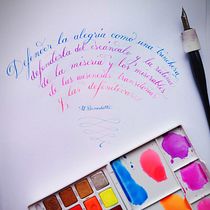 Defender la alegría como una trinchera
defenderla del escándalo y la rutina
de la miseria y los miserables
de las ausencias transitorias
y las definitivas
M. Benedetti